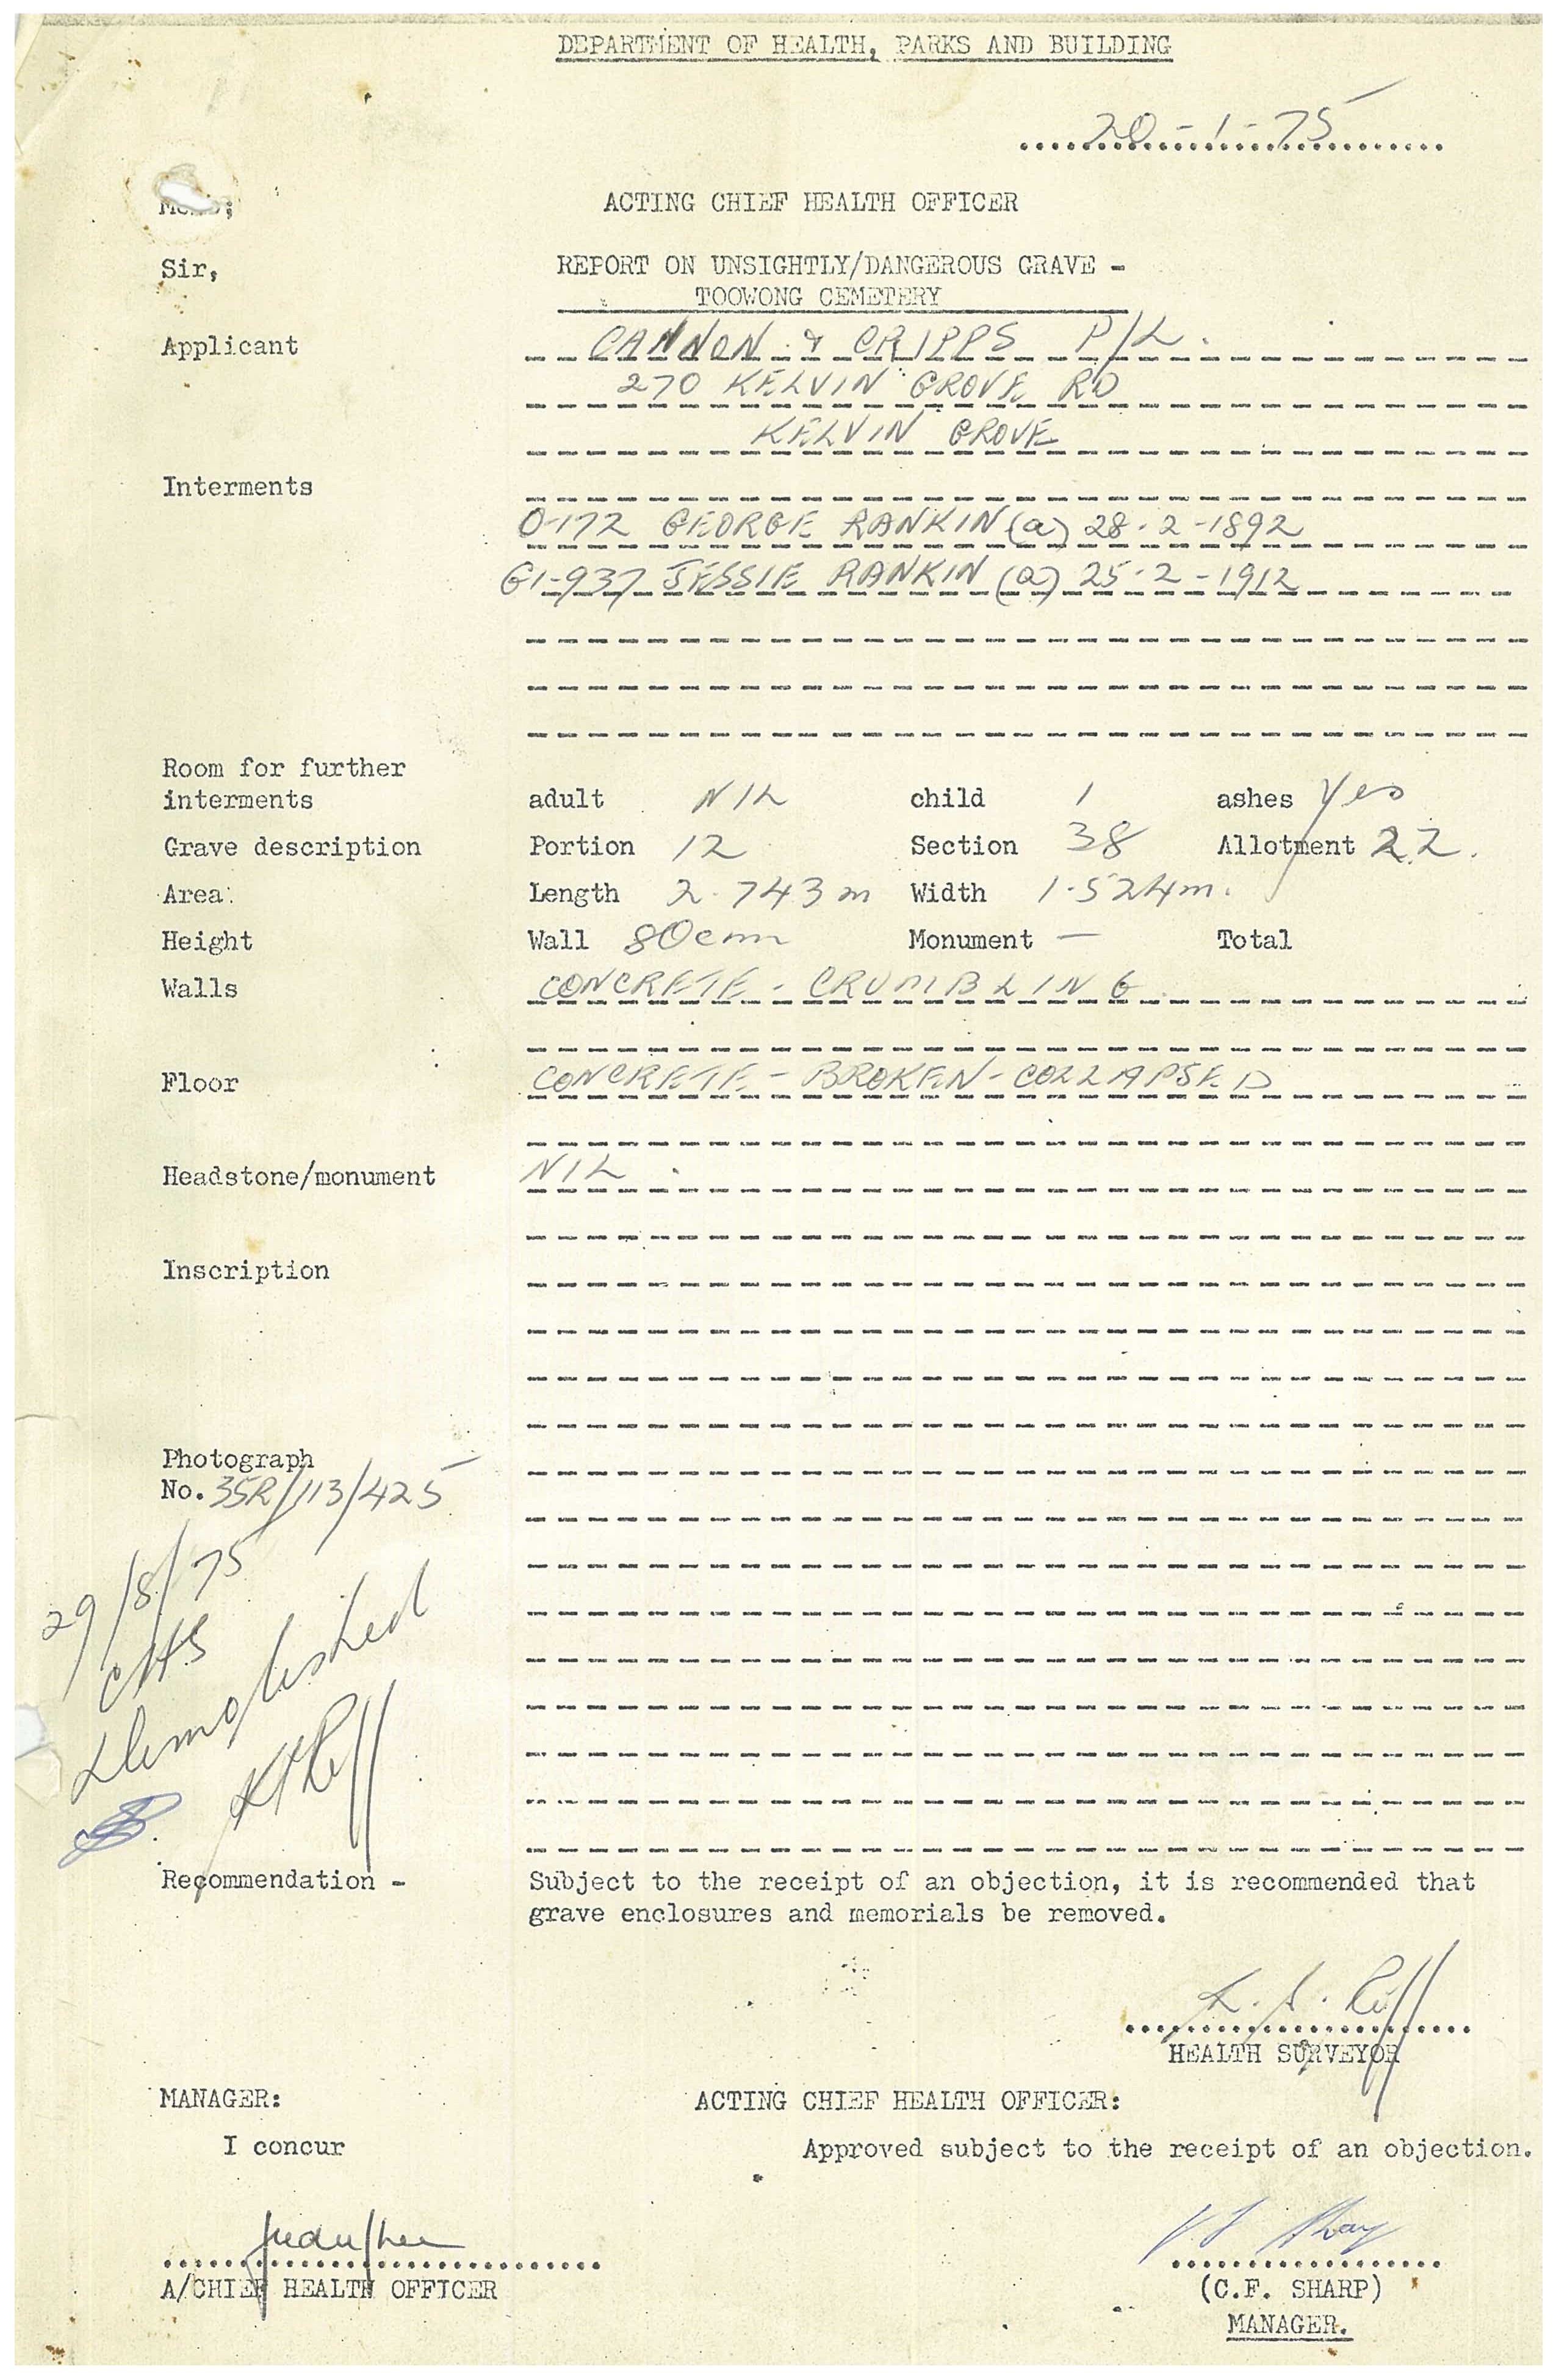 DEPARTMENT OF HEALTH, PARKS AND BUILDING
20-1-75
ACTING CHIEF HEALTH OFFICER
Sir,
REPORT ON UNSIGHTLY/DANGEROUS GRAVE -
TOOWONG CEMETERY
Applicant CANNON & CRIPPS P/L.
270 KELVIN GROVE RD
KELVIN GROVE
Interments
0-172 GEORGE RANKIN (a) 28-2-1892
G1-937 JESSIE RANKIN (a) 25-2-1912
Room for further
interments adult NIL child 1 ashes Yes
Grave description Portion 12 Section 38 Allotment 22.
Area: Length 2.743 m Width 1.524m.
Height Wall 80cm Monument — Total
Walls CONCRETE - CRUMBLING
Floor CONCRETE - BROKEN - COLLAPSED
Headstone/monument NIL.
Inscription
Photograph
No. 35R/113/425
29/8/75
CHS
Demolished
Recommendation - Subject to the receipt of an objection, it is recommended that
grave enclosures and memorials be removed.
HEALTH SURVEYOR
MANAGER: ACTING CHIEF HEALTH OFFICER:
I concur Approved subject to the receipt of an objection.
A/CHIEF HEALTH OFFICER (C.F. SHARP)
MANAGER.